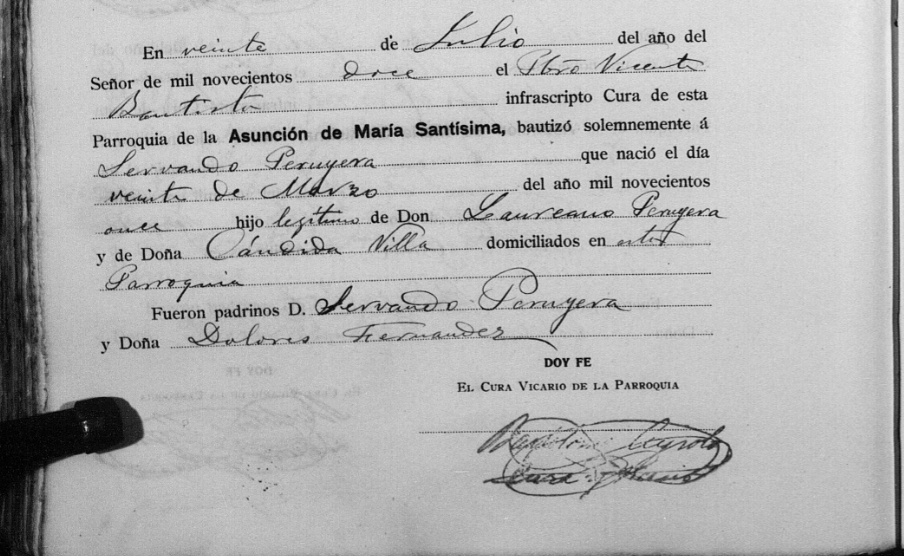 En veinte de Julio del año del
Señor de mil novecientos doce el Pbro Vicente
Bautista infrascripto Cura de esta
Parroquia de la Asunción de María Santísima, bautizó solemnemente á
Servando Peruyera que nació el día
veinte de Marzo del año mil novecientos
once hijo legítimo de Don Laureano Peruyera
y de Doña Cándida Villa domiciliados en esta
Parroquia
Fueron padrinos D. Servando Peruyera
y Doña Dolores Fernandez
DOY FE
EL CURA VICARIO DE LA PARROQUIA
Cura